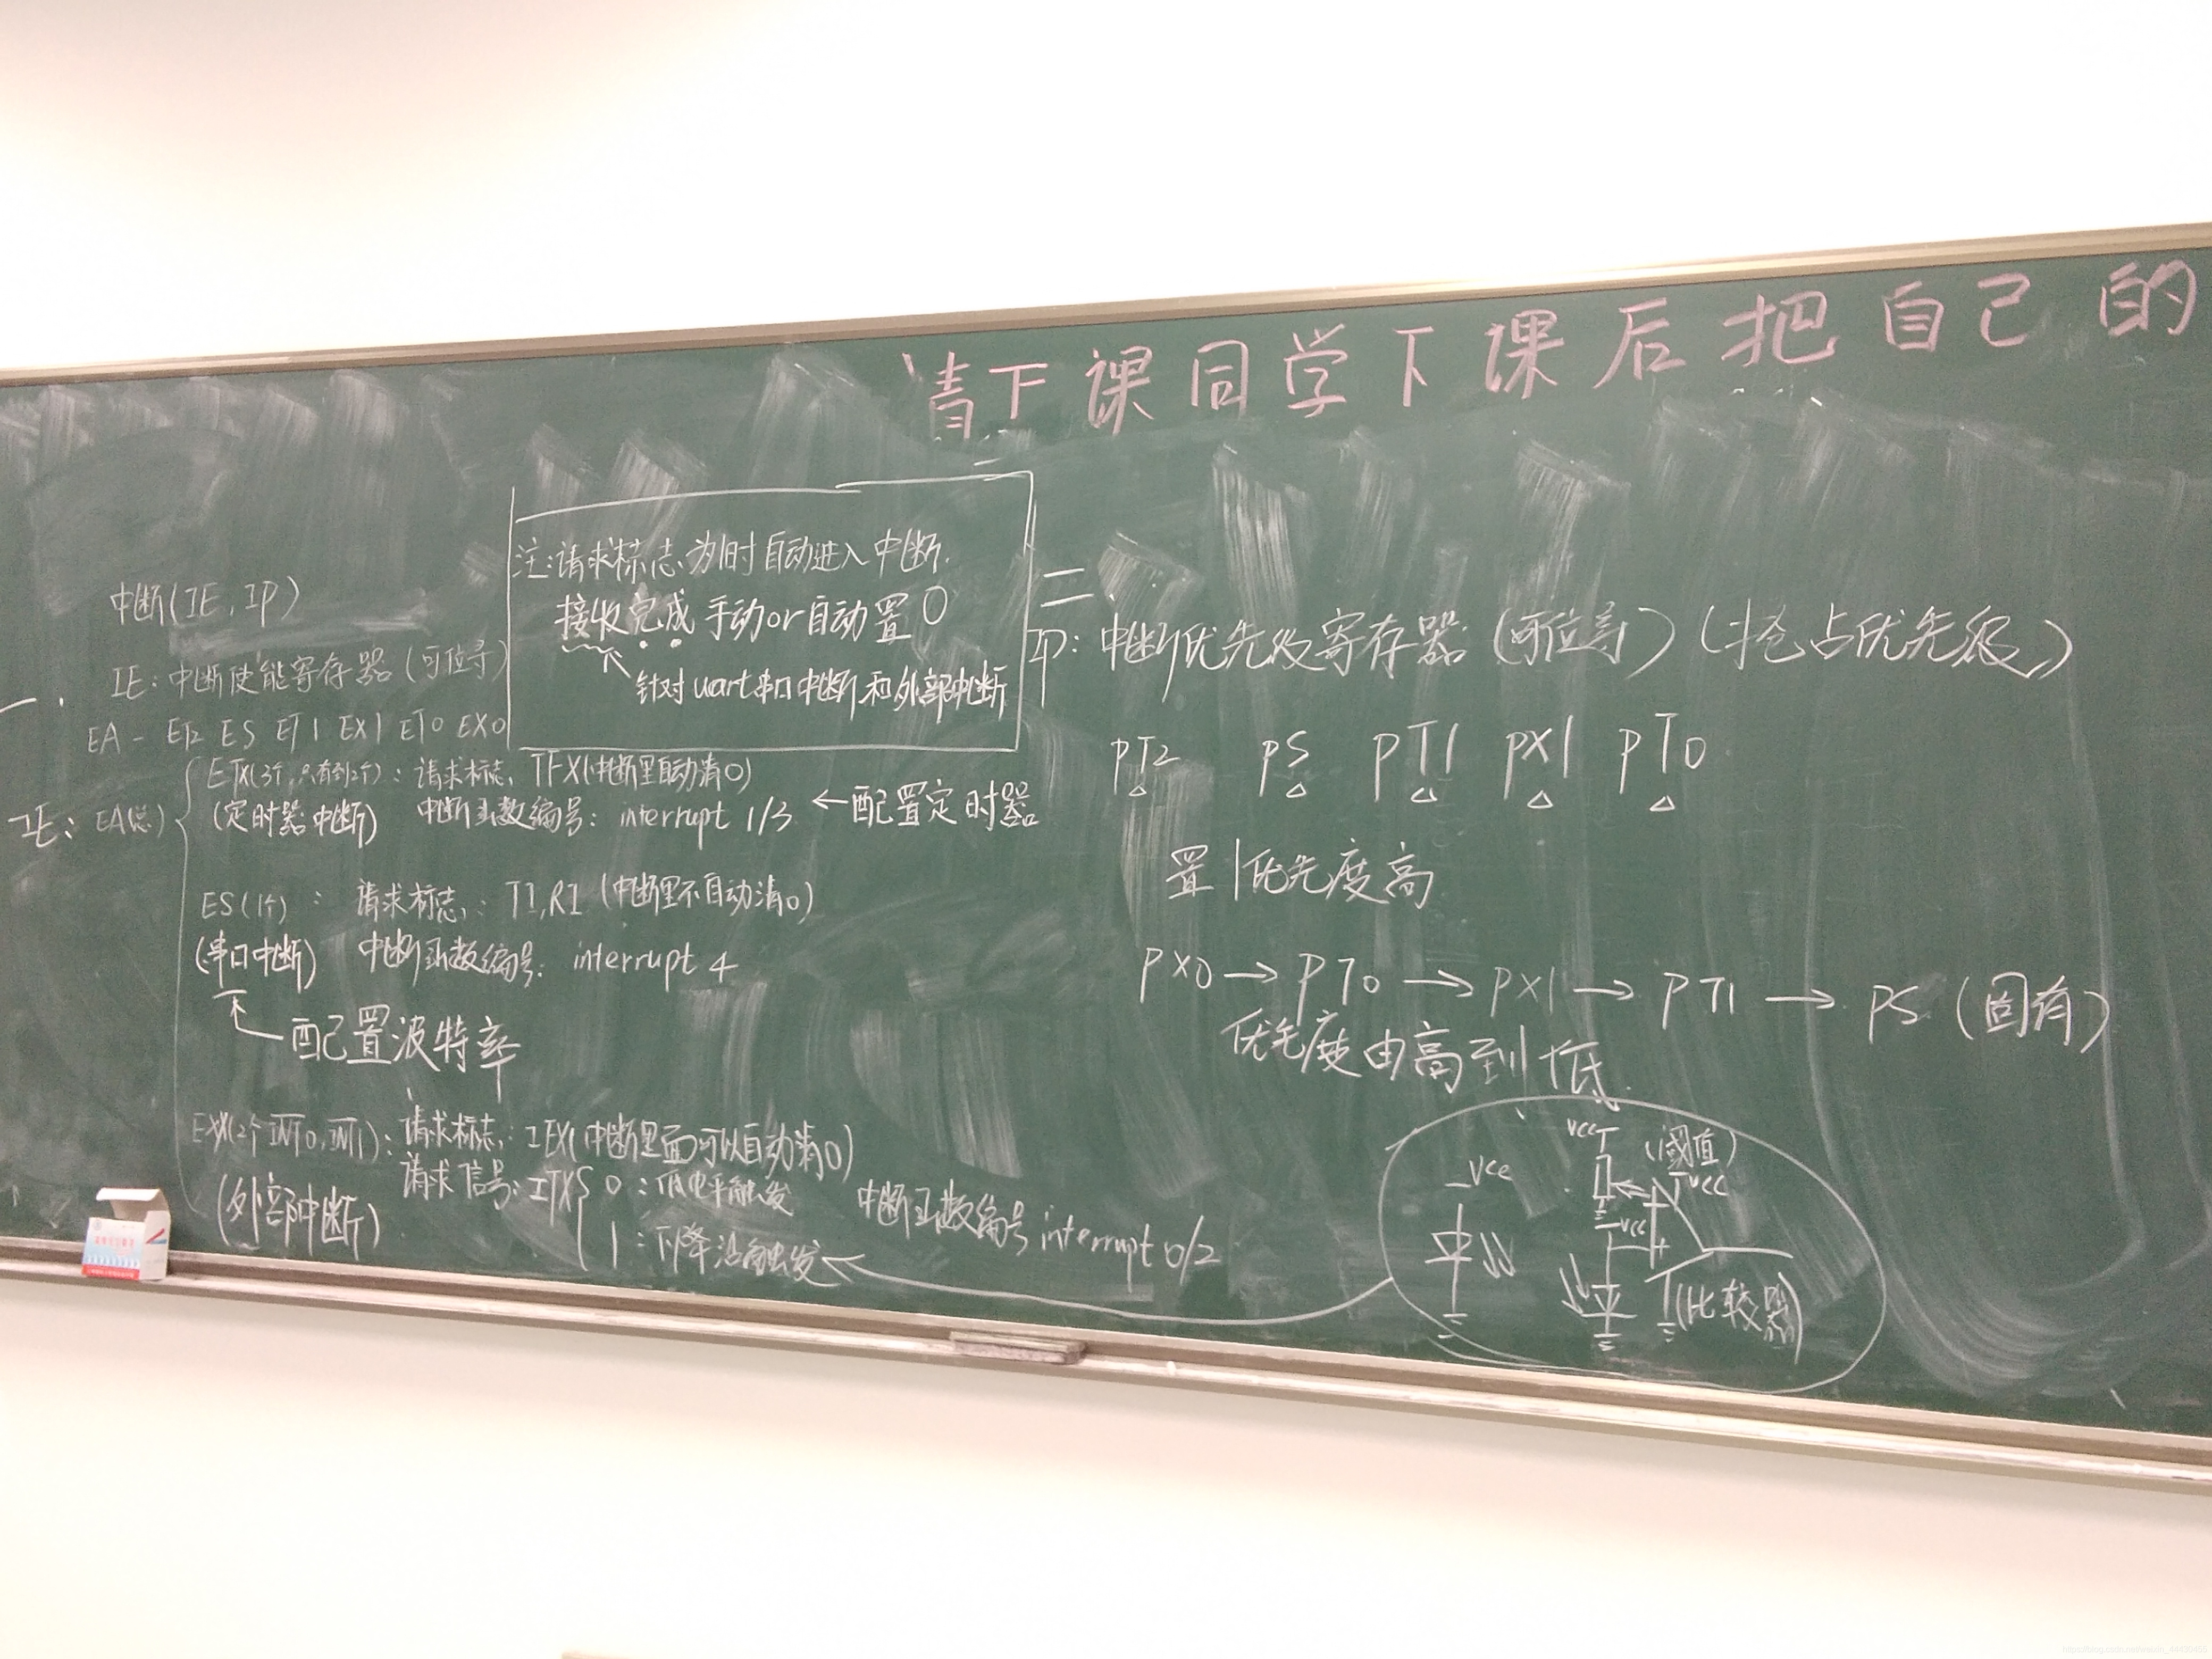 请下课同学下课后把自己的
注:请求标志为1时自动进入中断.
接收完成 手动or自动置0
针对uart串口中断和外部中断
中断(IE,IP)
一.
IE:中断使能寄存器(可位寻)
EA - ET2 ES ET1 EX1 ET0 EX0
IE: EA(总)
ETX(3个,只有到2个):请求标志 TFX(中断里自动清0)
(定时器中断) 中断函数编号: interrupt 1/3 ←配置定时器
ES(1个): 请求标志: TI,RI (中断里不自动清0)
(串口中断) 中断函数编号: interrupt 4
配置波特率
EXX(2个INT0,INT1):请求标志: IEX(中断里面可以自动清0)
请求信号: ITX 0:低电平触发
(外部中断) 1:下降沿触发
中断函数编号 interrupt 0/2
二.
IP:中断优先级寄存器(可位寻)(抢占优先级)
PT2 PS PT1 PX1 PT0
置1优先度高
PX0→PT0→PX1→PT1→PS(固有)
优先度由高到低.
VCC
VCC
(阈值)
VCC
VCC
(比较器)